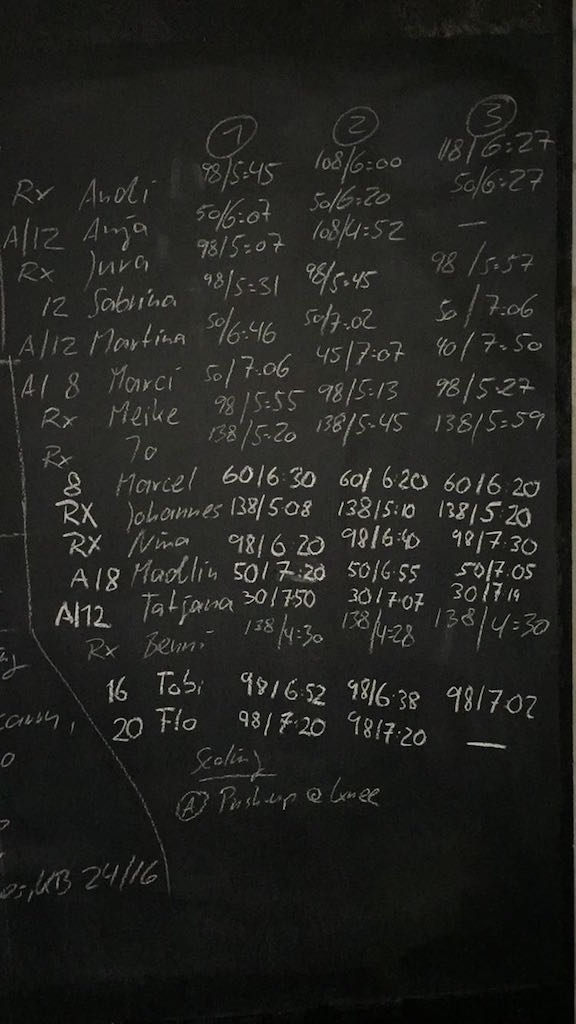 ① ② ③
Rx Andi 98/5:45 108/6:00 118/6:27
A/12 Anja 50/6:07 50/6:20 50/6:27
Rx Jura 98/5:07 108/4:52 —
12 Sabrina 98/5:31 98/5:45 98/5:57
A/12 Martina 50/6:46 50/7:02 50/7:06
A/8 Marci 50/7:06 45/7:07 40/7:50
Rx Meike 98/5:55 98/5:13 98/5:27
Rx Jo 138/5:20 138/5:45 138/5:59
8 Marcel 60/6:30 60/6:20 60/6:20
RX Johannes 138/5:08 138/5:10 138/5:20
RX Nina 98/6:20 98/6:40 98/7:30
A/8 Madlin 50/7:20 50/6:55 50/7:05
A/12 Tatjana 30/7:50 30/7:07 30/7:19
Rx Benni 138/4:30 138/4:28 138/4:30
16 Tobi 98/6:52 98/6:38 98/7:02
20 Flo 98/7:20 98/7:20 —
Scaling
Ⓐ Push-up @ knee
KB 24/16